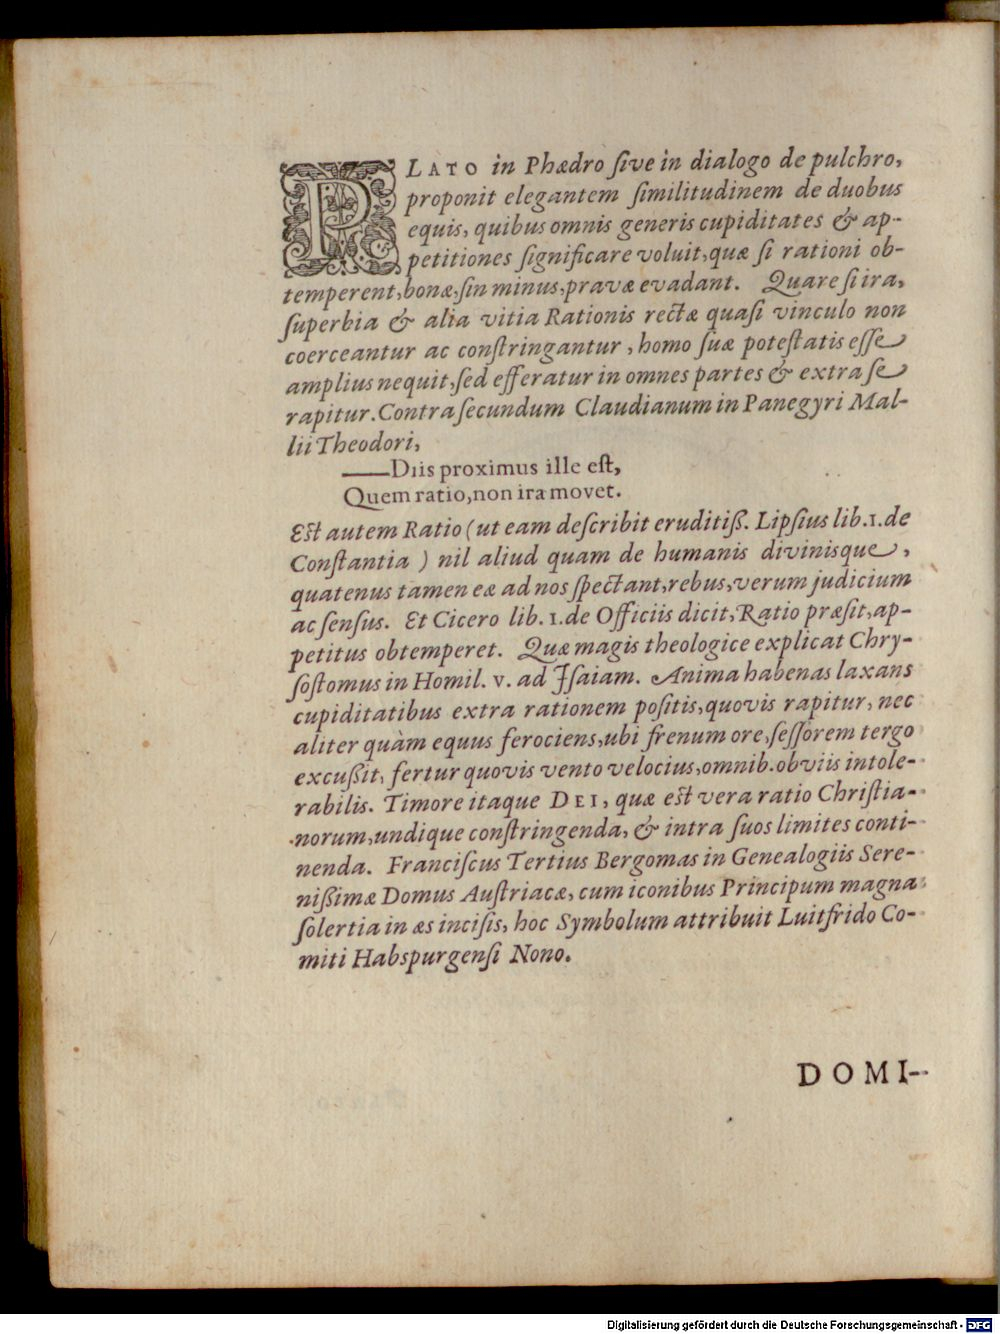 PLATO in Phædro ſive in dialogo de pulchro,
proponit elegantem ſimilitudinem de duobus
equis, quibus omnis generis cupiditates & ap-
petitiones ſignificare voluit, quæ ſi rationi ob-
temperent, bonæ, ſin minus, pravæ evadant. Quare ſi ira,
ſuperbia & alia vitia Rationis rectæ quaſi vinculo non
coerceantur ac conſtringantur, homo ſuæ poteſtatis eſſe
amplius nequit, ſed efferatur in omnes partes & extra ſe
rapitur. Contra ſecundum Claudianum in Panegyri Mal-
lii Theodori,
——Diis proximus ille eſt,
Quem ratio, non ira movet.
Eſt autem Ratio (ut eam deſcribit eruditiß. Lipſius lib. 1. de
Conſtantia ) nil aliud quam de humanis divinisque,
quatenus tamen eæ ad nos ſpectant, rebus, verum judicium
ac ſenſus. Et Cicero lib. 1. de Officiis dicit, Ratio præſit, ap-
petitus obtemperet. Quæ magis theologice explicat Chry-
ſoſtomus in Homil. v. ad Iſaiam. Anima habenas laxans
cupiditatibus extra rationem poſitis, quovis rapitur, nec
aliter quàm equus ferociens, ubi frenum ore, ſeſſorem tergo
excußit, fertur quovis vento velocius, omnib. obviis intole-
rabilis. Timore itaque DEI, quæ eſt vera ratio Chriſtia-
norum, undique conſtringenda, & intra ſuos limites conti-
nenda. Franciſcus Tertius Bergomas in Genealogiis Sere-
nißimæ Domus Auſtriacæ, cum iconibus Principum magna
ſolertia in æs inciſis, hoc Symbolum attribuit Luitfrido Co-
miti Habspurgenſi Nono.
DOMI-
Digitalisierung gefördert durch die Deutsche Forschungsgemeinschaft - DFG